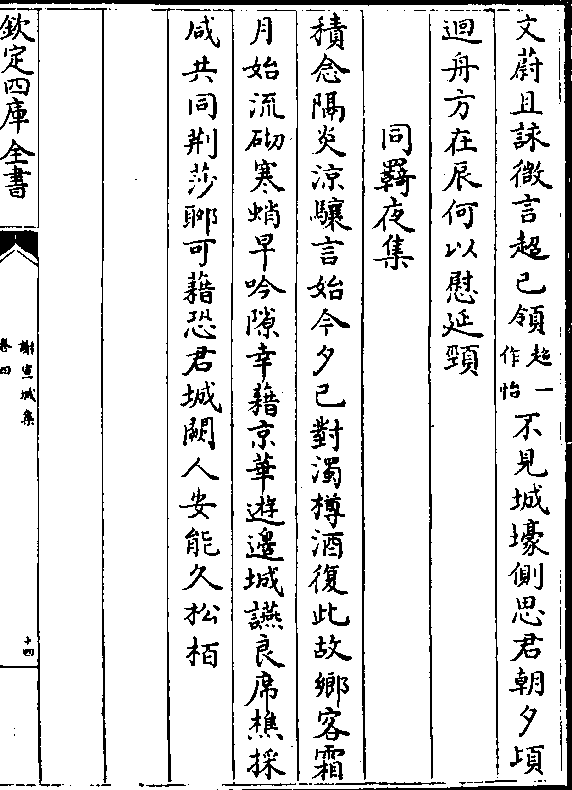 文蔚且誅微言超已領超一作怡不見城壕側思君朝夕頃
迴舟方在辰何以慰延頸
同羇夜集
積念隔炎涼驤言始今夕已對濁樽酒復此故鄉客霜
月始流砌寒蛸早吟隙幸藉京華遊邊城讌良席樵採
咸共同荆莎聊可藉恐君城闕人安能久松栢
欽定四庫全書
謝宣城集
卷四
十四